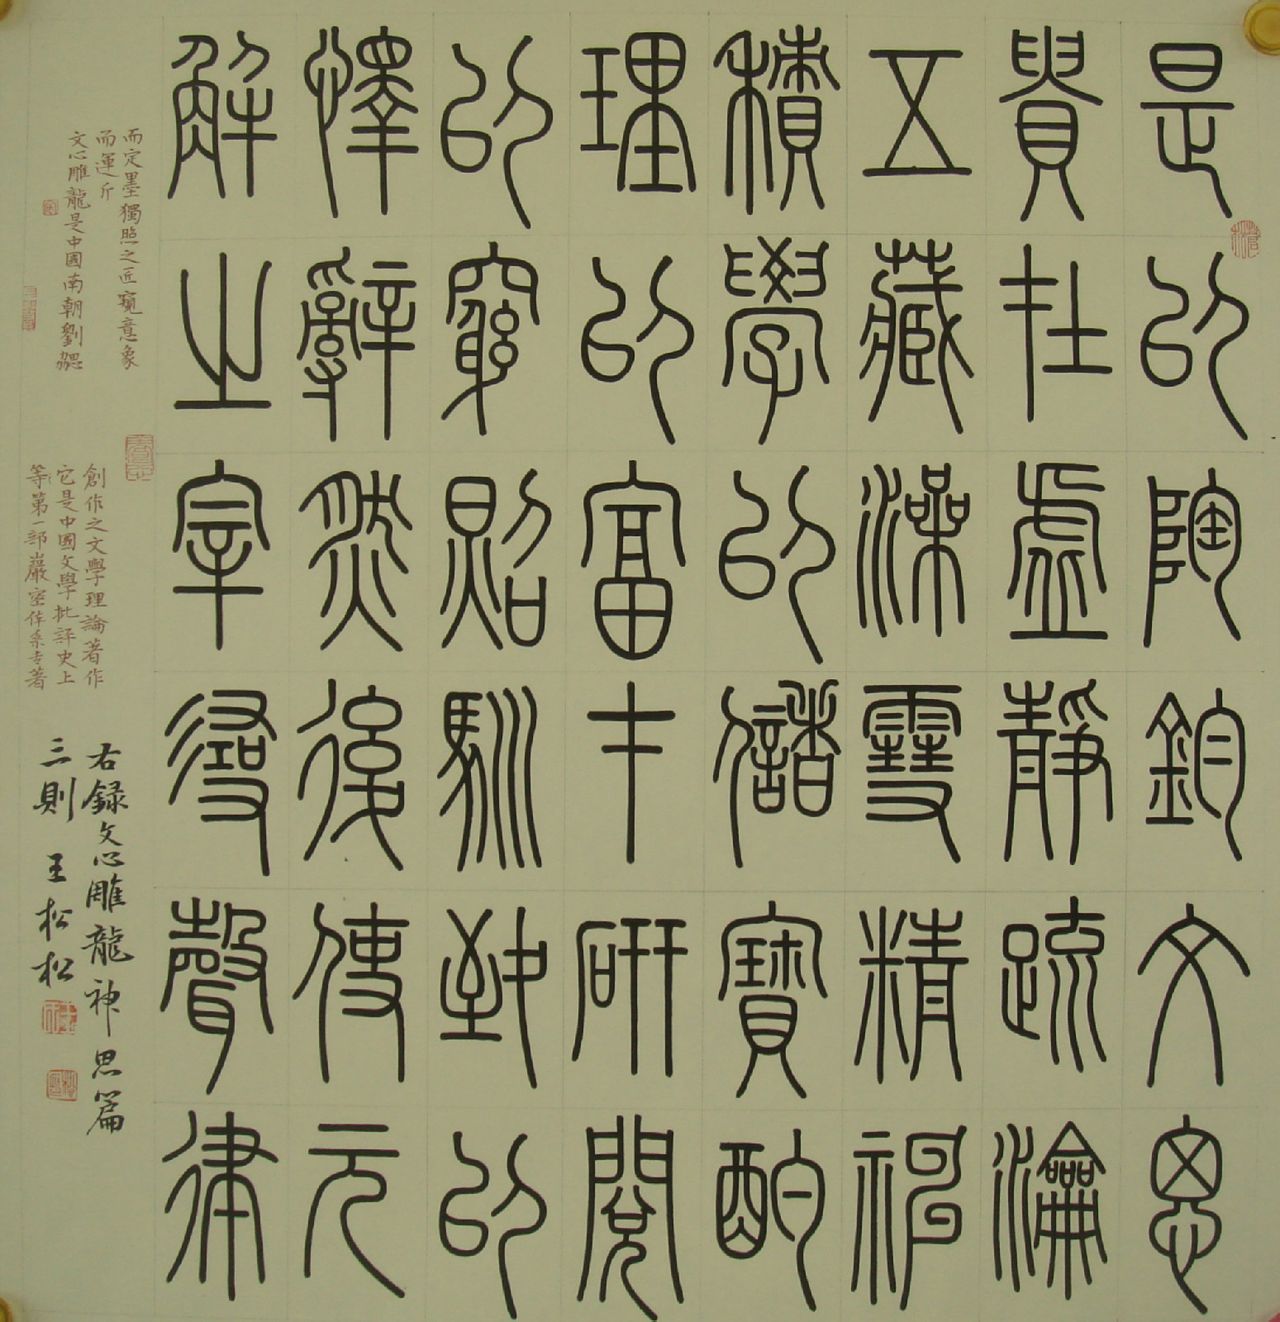 是以陶鈞文思
貴在虛靜疏瀹
五藏澡雪精神
積學以儲寶酌
理以富才研閱
以窮照馴致以
懌辭然後使元
解之宰尋聲律
而定墨獨照之匠窺意象
而運斤
文心雕龍是中國南朝劉勰
創作之文學理論著作
它是中國文學批評史上
第一部嚴密体系专著
右録文心雕龍神思篇
三則 王松松